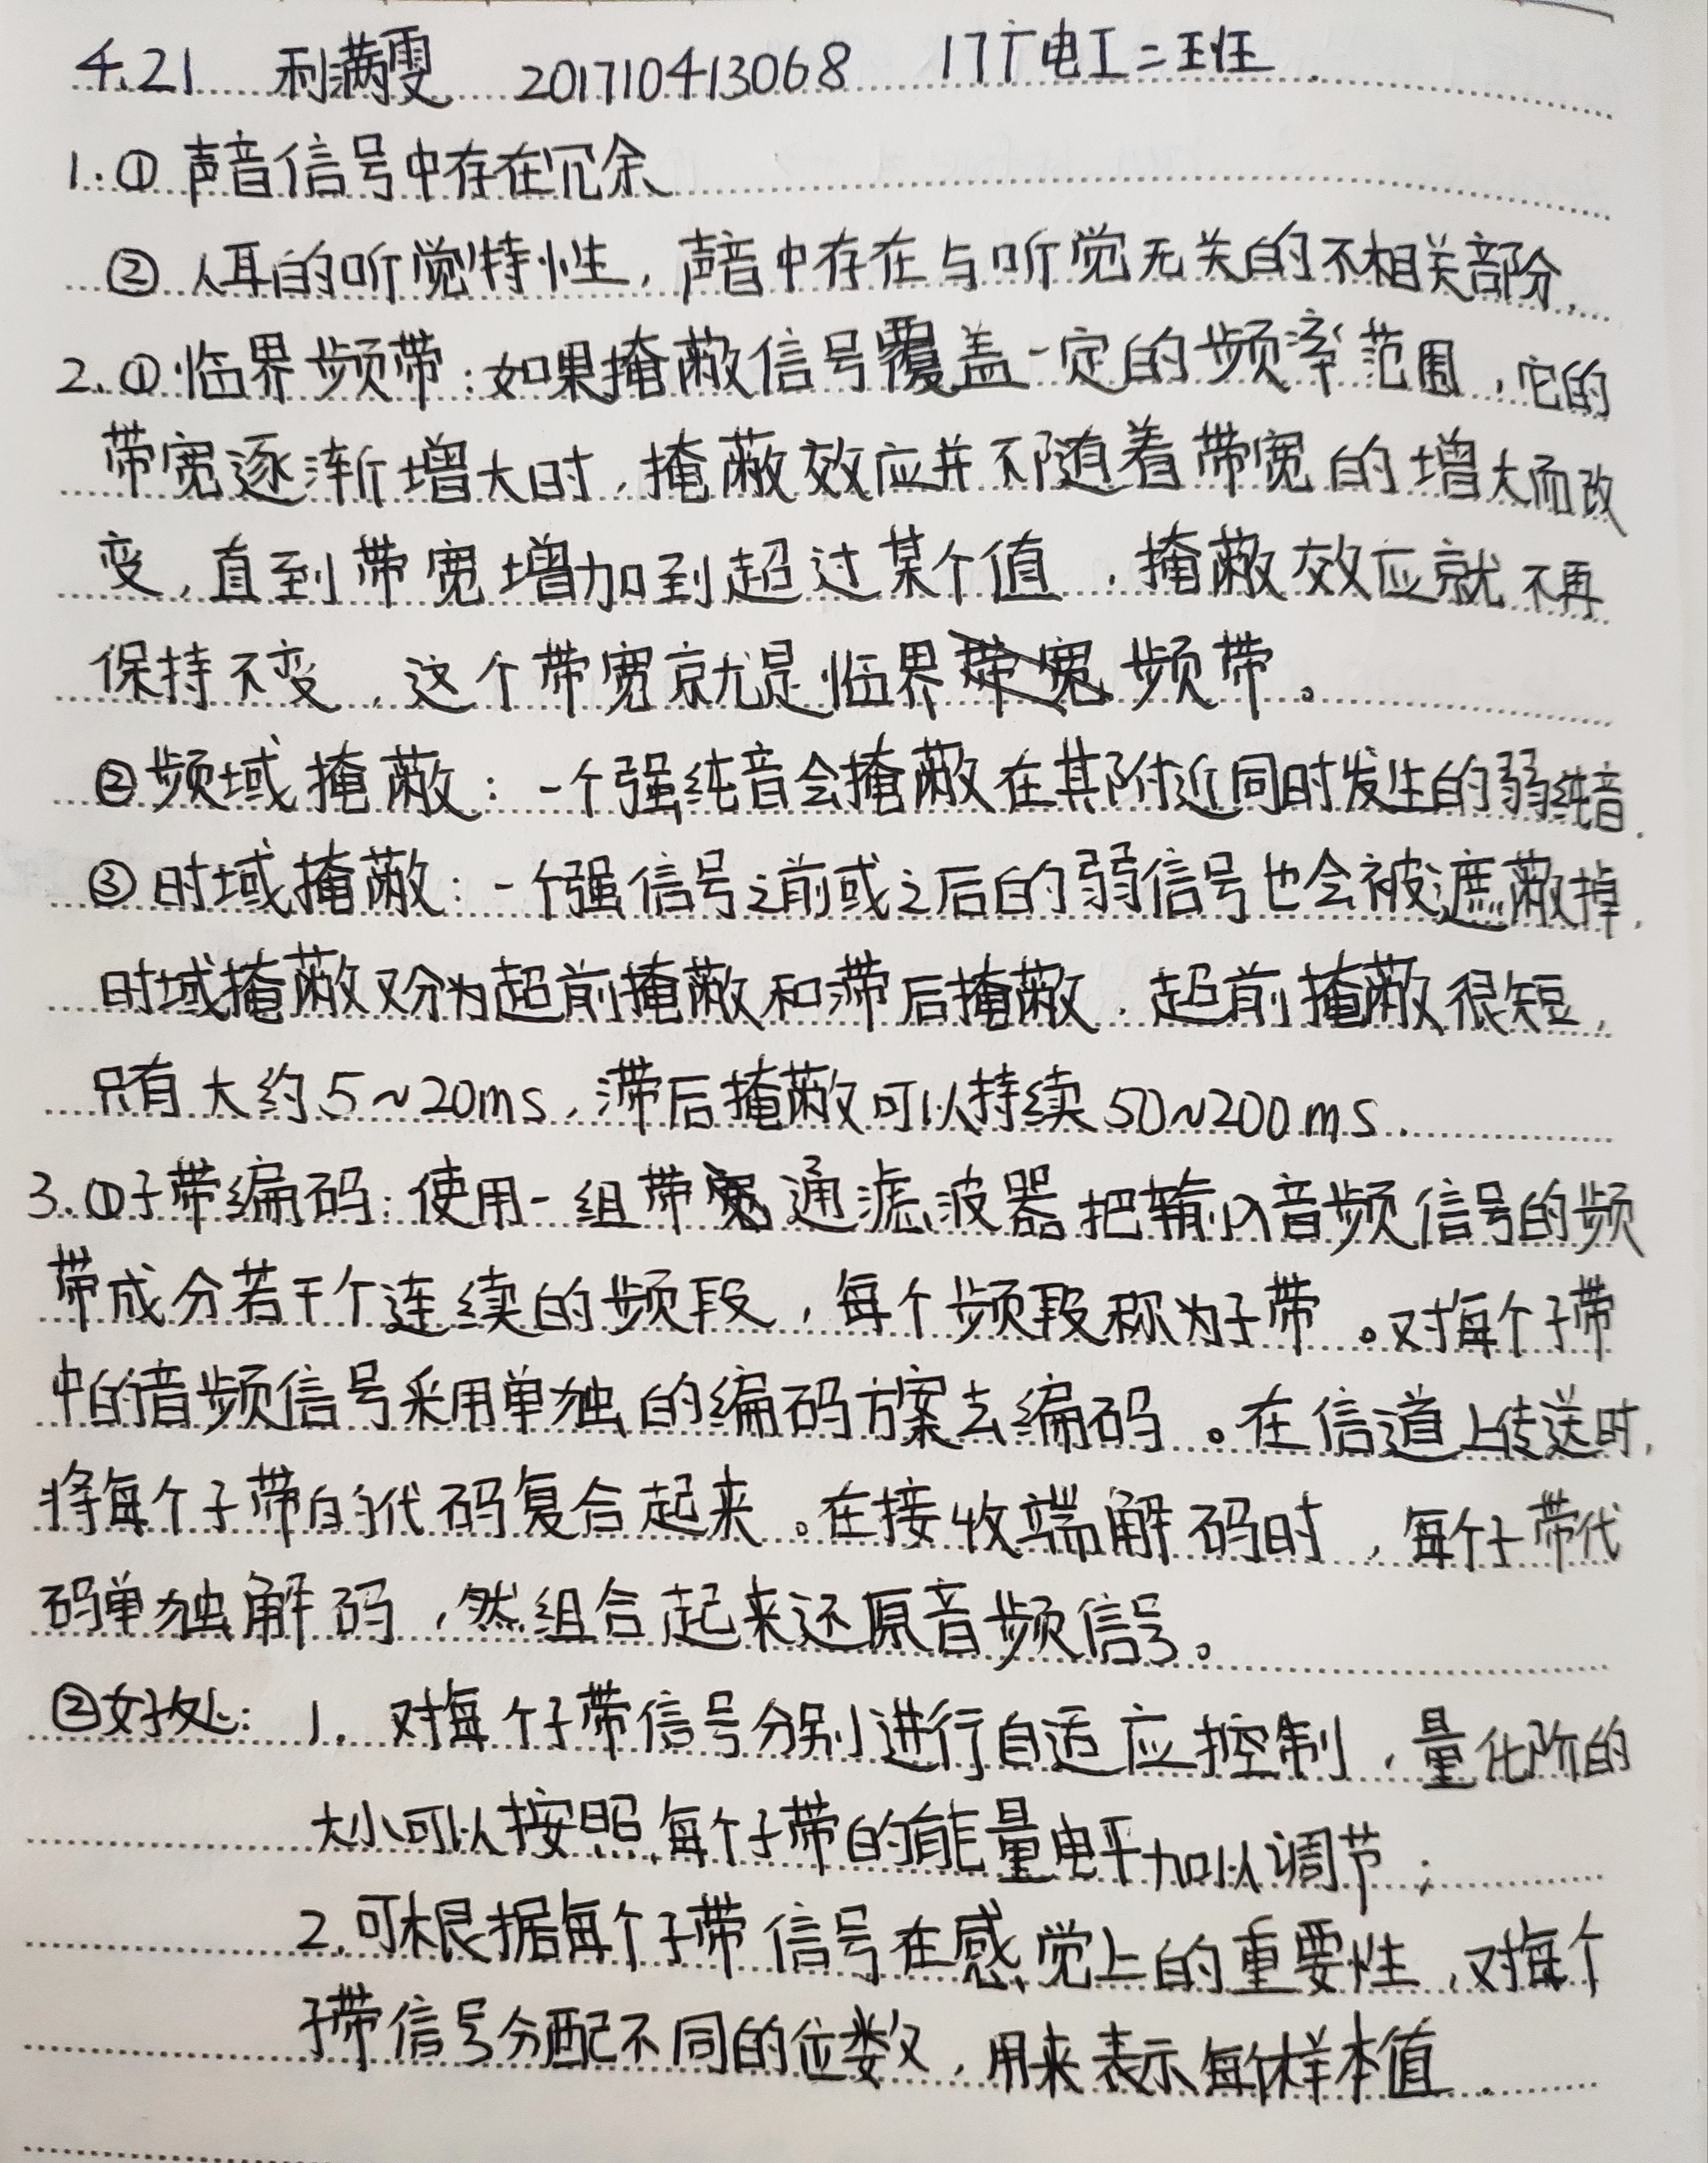 4.21 利满雯 201710413068 17广电工二班
1.① 声音信号中存在冗余
② 人耳的听觉特性,声音中存在与听觉无关的不相关部分.
2.① 临界频带:如果掩蔽信号覆盖一定的频率范围,它的
带宽逐渐增大时,掩蔽效应并不随着带宽的增大而改
变,直到带宽增加到超过某个值,掩蔽效应就不再
保持不变,这个带宽就是临界频带。
②频域掩蔽:一个强纯音会掩蔽在其附近同时发生的弱纯音.
③时域掩蔽:一个强信号之前或之后的弱信号也会被遮蔽掉.
时域掩蔽又分为超前掩蔽和滞后掩蔽.超前掩蔽很短,
只有大约5~20ms,滞后掩蔽可以持续50~200ms.
3.①子带编码:使用一组带通滤波器把输入音频信号的频
带成分若干个连续的频段,每个频段称为子带。对每个子带
中的音频信号采用单独的编码方案去编码。在信道上传送时,
将每个子带的代码复合起来。在接收端解码时,每个子带代
码单独解码,然组合起来还原音频信号。
②好处:1.对每个子带信号分别进行自适应控制,量化阶的
大小可以按照每个子带的能量电平加以调节;
2.可根据每个子带信号在感觉上的重要性,对每个
子带信号分配不同的位数,用来表示每个样本值.